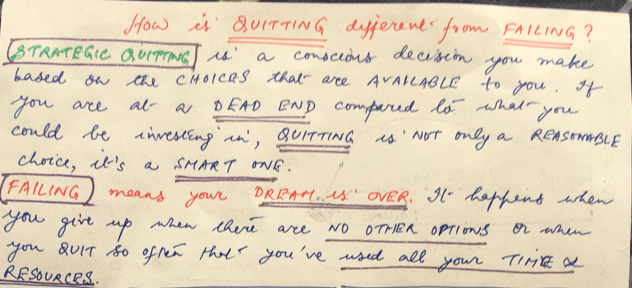 How is QUITTING different from FAILING?
STRATEGIC QUITTING is a conscious decision you make
based on the CHOICES that are AVAILABLE to you. If
you are at a DEAD END compared to what you
could be investing in, QUITTING is NOT only a REASONABLE
choice, it's a SMART ONE.
FAILING means your DREAM is OVER. It happens when
you give up when there are NO OTHER OPTIONS or when
you QUIT so often that you've used all your TIME &
RESOURCES.